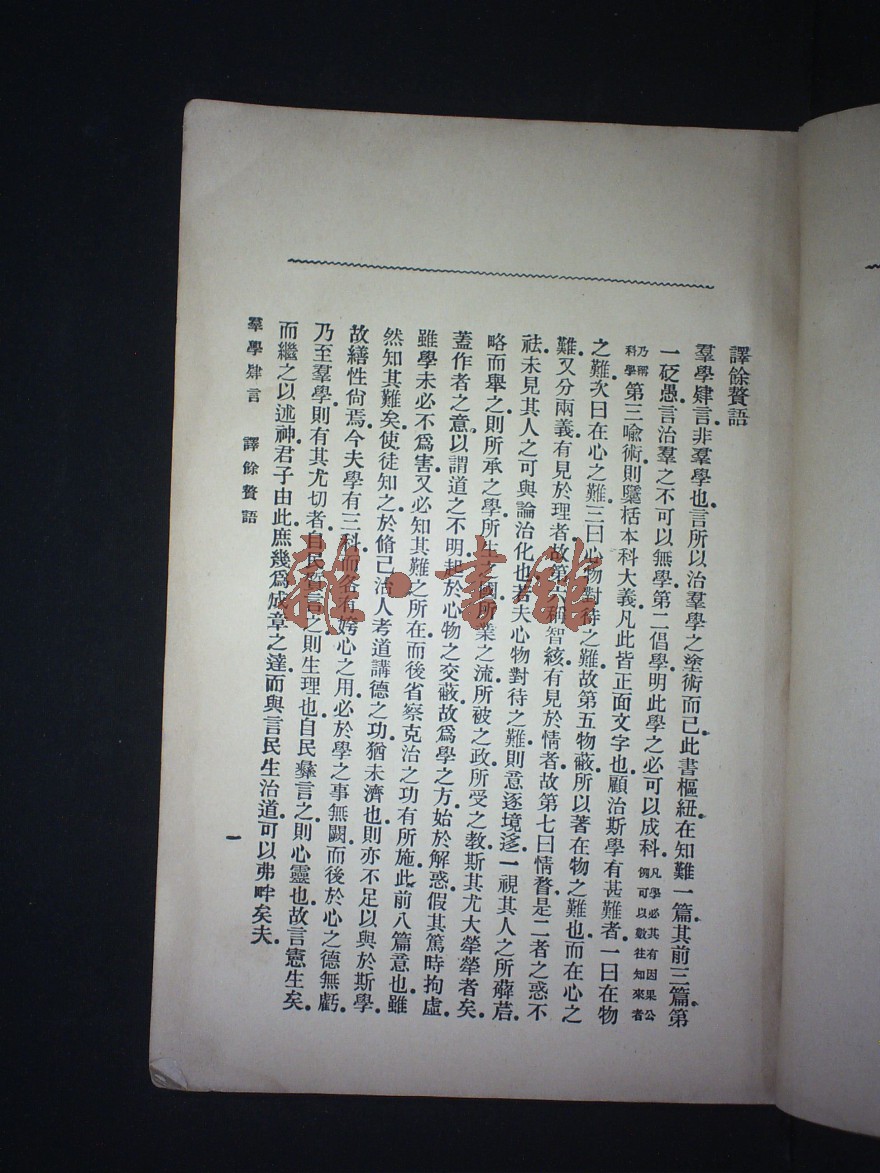 譯餘贅語
羣學肆言非羣學也言所以治羣學之塗術而已此書樞紐在知難一篇其前三篇第
一砭愚言治羣之不可以無學第二倡學明此學之必可以成科凡學必其有因果公例可以數往知來者
乃稱科學第三喻術則櫽栝本科大義凡此皆正面文字也顧治斯學有甚難者一曰在物
之難次曰在心之難三曰心物對待之難故第五物蔽所以著在物之難也而在心之
難又分兩義有見於理者故第六稱智絯有見於情者故第七曰情瞀是二者之惑不
祛未見其人之可與論治化也若夫心物對待之難則意逐境迻一視其人之所薜萿
略而舉之則所承之學所生之國所業之流所被之政所受之教斯其尤大犖犖者矣
蓋作者之意以謂道之不明起於心物之交蔽故爲學之方始於解惑假其篤時拘虛
雖學未必不爲害又必知其難之所在而後省察克治之功有所施此前八篇意也雖
然知其難矣使徒知之於脩己治人考道講德之功猶未濟也則亦不足以與於斯學
故繕性尙焉今夫學有三科而各有姱心之用必於學之事無闕而後於心之德無虧
乃至羣學則有其尤切者自民質言之則生理也自民彝言之則心靈也故言憲生矣
而繼之以述神君子由此庶幾爲成章之達而與言民生治道可以弗畔矣夫
羣學肆言 譯餘贅語 一
雜·書館